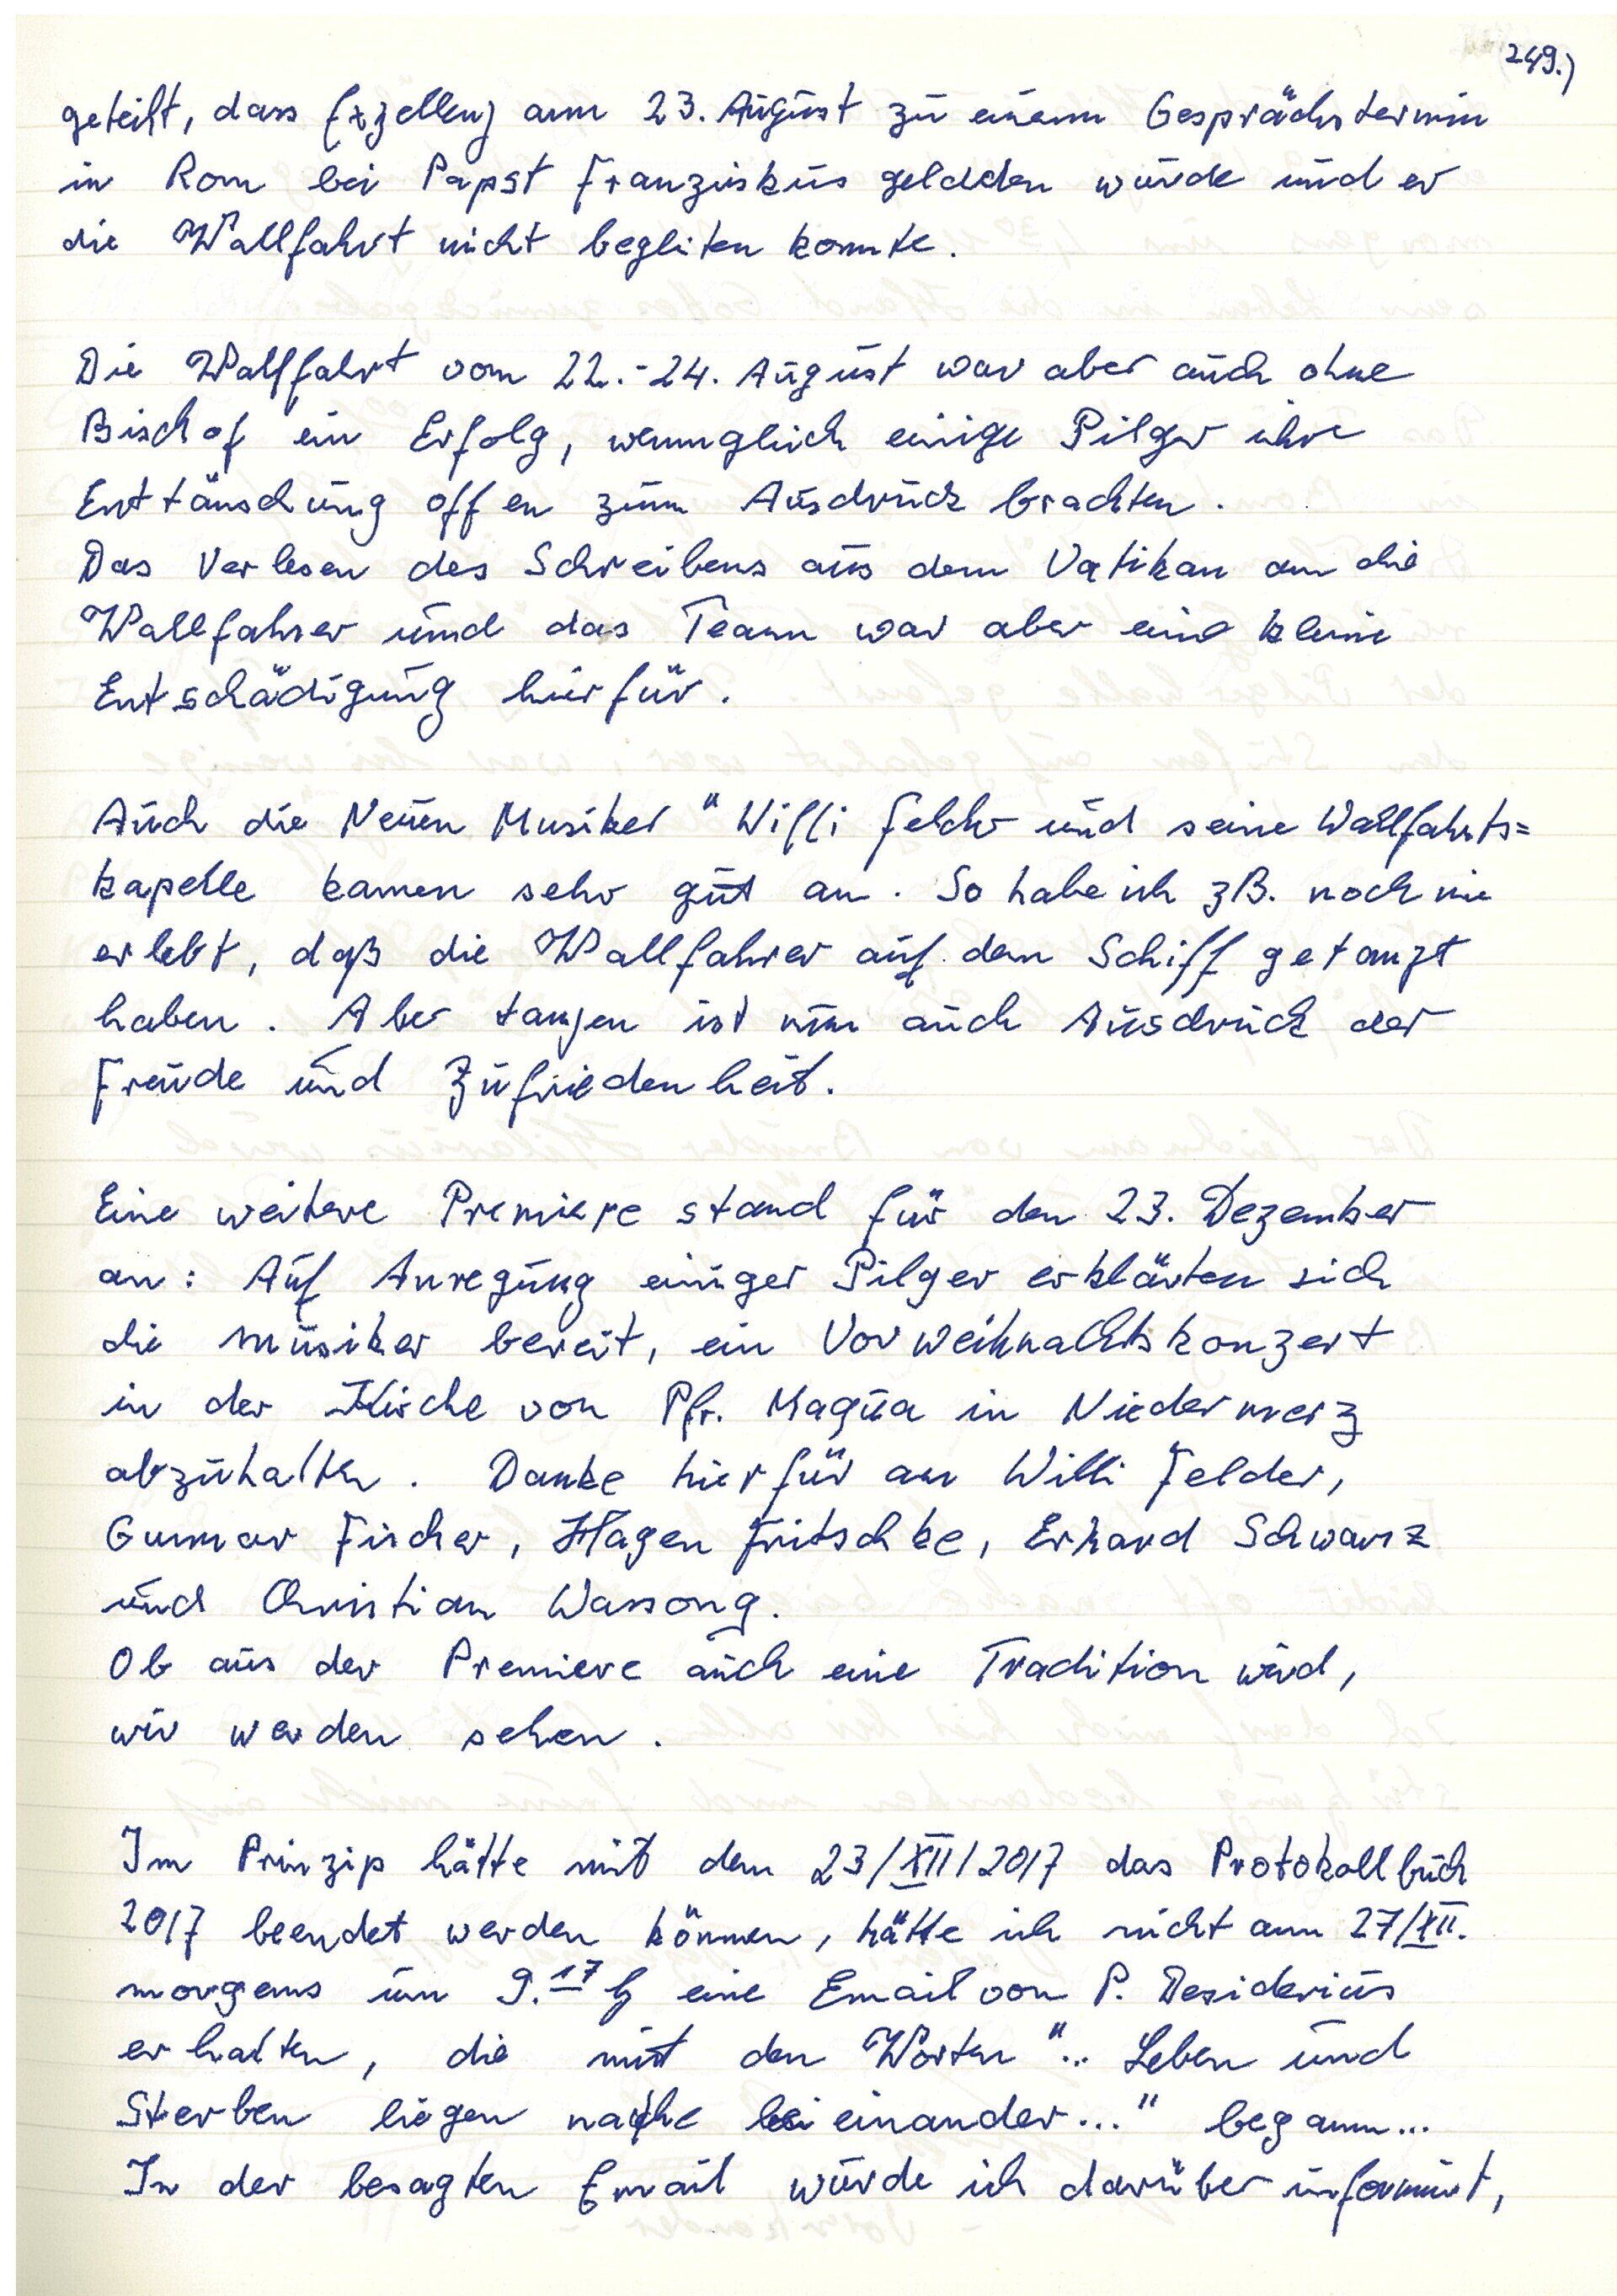 249.)
geteilt, dass Exzellenz am 23. August zu einem Gesprächstermin
in Rom bei Papst Franziskus geladen wurde und er
die Wallfahrt nicht begleiten konnte.
Die Wallfahrt vom 22.-24. August war aber auch ohne
Bischof ein Erfolg, wenngleich einige Pilger ihre
Enttäuschung offen zum Ausdruck brachten.
Das Verlesen des Schreibens aus dem Vatikan an die
Wallfahrer und das Team war aber eine kleine
Entschädigung hierfür.
Auch die Neuen Musiker "Willi Felder und seine Wallfahrts=
kapelle kamen sehr gut an. So habe ich zB. noch nie
erlebt, daß die Wallfahrer auf dem Schiff getanzt
haben. Aber tanzen ist nun auch Ausdruck der
Freude und Zufriedenheit.
Eine weitere Premiere stand für den 23. Dezember
an: Auf Anregung einiger Pilger erklärten sich
die Musiker bereit, ein Vorweihnachtskonzert
in der Kirche von Pfr. Maqua in Niedermerz
abzuhalten. Danke hierfür an Willi Felder,
Gunnar Fischer, Hagen Fritschke, Erhard Schwarz
und Christian Wassong.
Ob aus der Premiere auch eine Tradition wird,
wir werden sehen.
Im Prinzip hätte mit dem 23/XII/2017 das Protokollbuch
2017 beendet werden können, hätte ich nicht am 27/XII.
morgens um 9.17 h eine Email von P. Desiderius
erhalten, die mit den Worten "... Leben und
Sterben liegen nahe beieinander..." begann...
In der besagten Email wurde ich darüber informiert,